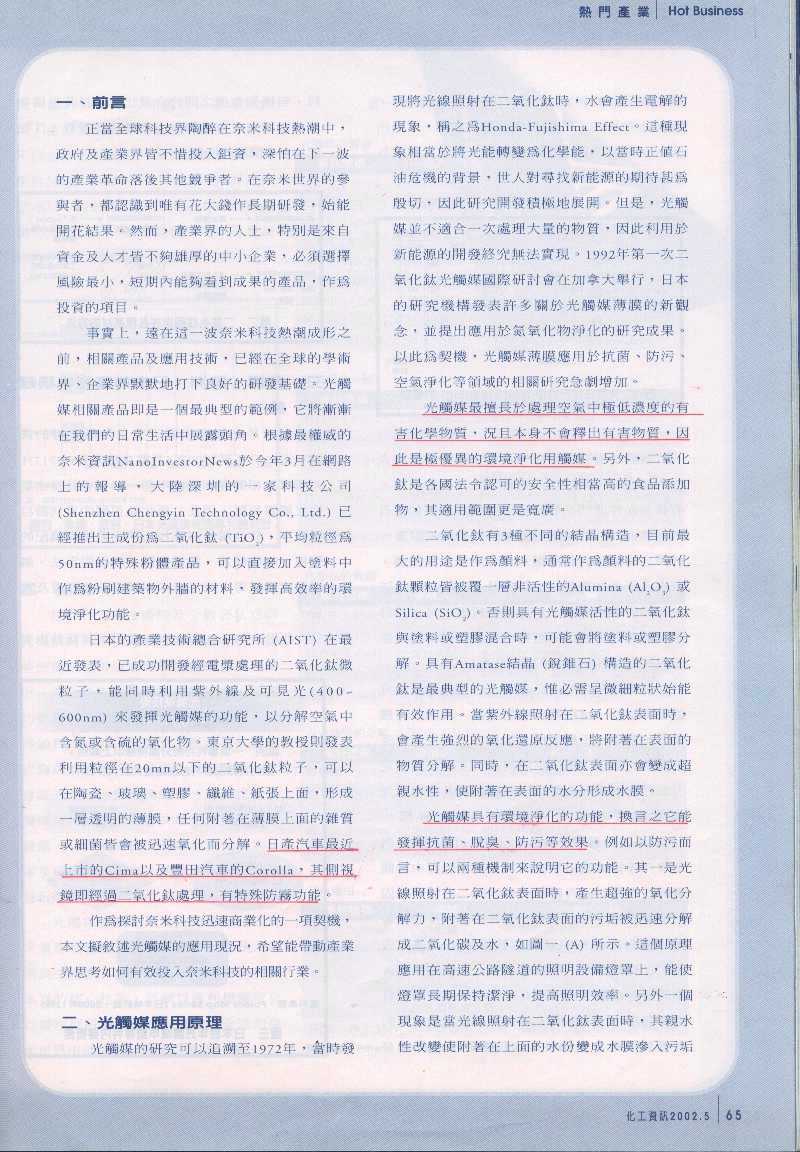 熱門產業 Hot Business
一、前言
正當全球科技界陶醉在奈米科技熱潮中，
政府及產業界皆不惜投入鉅資，深怕在下一波
的產業革命落後其他競爭者。在奈米世界的參
與者，都認識到唯有花大錢作長期研發，始能
開花結果。然而，產業界的人士，特別是來自
資金及人才皆不夠雄厚的中小企業，必須選擇
風險最小，短期內能夠看到成果的產品，作爲
投資的項目。
事實上，遠在這一波奈米科技熱潮成形之
前，相關產品及應用技術，已經在全球的學術
界、企業界默默地打下良好的研發基礎。光觸
媒相關產品即是一個最典型的範例，它將漸漸
在我們的日常生活中展露頭角。根據最權威的
奈米資訊NanoInvestorNews於今年3月在網路
上的報導，大陸深圳的一家科技公司
(Shenzhen Chengyin Technology Co., Ltd.) 已
經推出主成份爲二氧化鈦 (TiO₂)，平均粒徑爲
50nm的特殊粉體產品，可以直接加入塗料中
作爲粉刷建築物外牆的材料，發揮高效率的環
境淨化功能。
日本的產業技術總合研究所 (AIST) 在最
近發表，已成功開發經電漿處理的二氧化鈦微
粒子，能同時利用紫外線及可見光(400-
600nm) 來發揮光觸媒的功能，以分解空氣中
含氮或含硫的氧化物。東京大學的教授則發表
利用粒徑在20mn以下的二氧化鈦粒子，可以
在陶瓷、玻璃、塑膠、纖維、紙張上面，形成
一層透明的薄膜，任何附著在薄膜上面的雜質
或細菌皆會被迅速氧化而分解。日產汽車最近
上市的Cima以及豐田汽車的Corolla，其側視
鏡即經過二氧化鈦處理，有特殊防霧功能。
作爲探討奈米科技迅速商業化的一項契機，
本文擬敘述光觸媒的應用現況，希望能帶動產業
界思考如何有效投入奈米科技的相關行業。
二、光觸媒應用原理
光觸媒的研究可以追溯至1972年，當時發
現將光線照射在二氧化鈦時，水會產生電解的
現象，稱之爲Honda-Fujishima Effect。這種現
象相當於將光能轉變爲化學能，以當時正值石
油危機的背景，世人對尋找新能源的期待甚爲
殷切，因此研究開發積極地展開。但是，光觸
媒並不適合一次處理大量的物質，因此利用於
新能源的開發終究無法實現。1992年第一次二
氧化鈦光觸媒國際研討會在加拿大舉行，日本
的研究機構發表許多關於光觸媒薄膜的新觀
念，並提出應用於氮氧化物淨化的研究成果。
以此爲契機，光觸媒薄膜應用於抗菌、防污、
空氣淨化等領域的相關研究急劇增加。
光觸媒最擅長於處理空氣中極低濃度的有
害化學物質，況且本身不會釋出有害物質，因
此是極優異的環境淨化用觸媒。另外，二氧化
鈦是各國法令認可的安全性相當高的食品添加
物，其適用範圍更是寬廣。
二氧化鈦有3種不同的結晶構造，目前最
大的用途是作爲顏料，通常作爲顏料的二氧化
鈦顆粒皆被覆一層非活性的Alumina (Al₂O₃) 或
Silica (SiO₂)。否則具有光觸媒活性的二氧化鈦
與塗料或塑膠混合時，可能會將塗料或塑膠分
解。具有Amatase結晶 (銳錐石) 構造的二氧化
鈦是最典型的光觸媒，惟必需呈微細粒狀始能
有效作用。當紫外線照射在二氧化鈦表面時，
會產生強烈的氧化還原反應，將附著在表面的
物質分解。同時，在二氧化鈦表面亦會變成超
親水性，使附著在表面的水分形成水膜。
光觸媒具有環境淨化的功能，換言之它能
發揮抗菌、脫臭、防污等效果。例如以防污而
言，可以兩種機制來說明它的功能。其一是光
線照射在二氧化鈦表面時，產生超強的氧化分
解力，附著在二氧化鈦表面的污垢被迅速分解
成二氧化碳及水，如圖一 (A) 所示。這個原理
應用在高速公路隧道的照明設備燈罩上，能使
燈罩長期保持潔淨，提高照明效率。另外一個
現象是當光線照射在二氧化鈦表面時，其親水
性改變使附著在上面的水份變成水膜滲入污垢
化工資訊2002.5 65